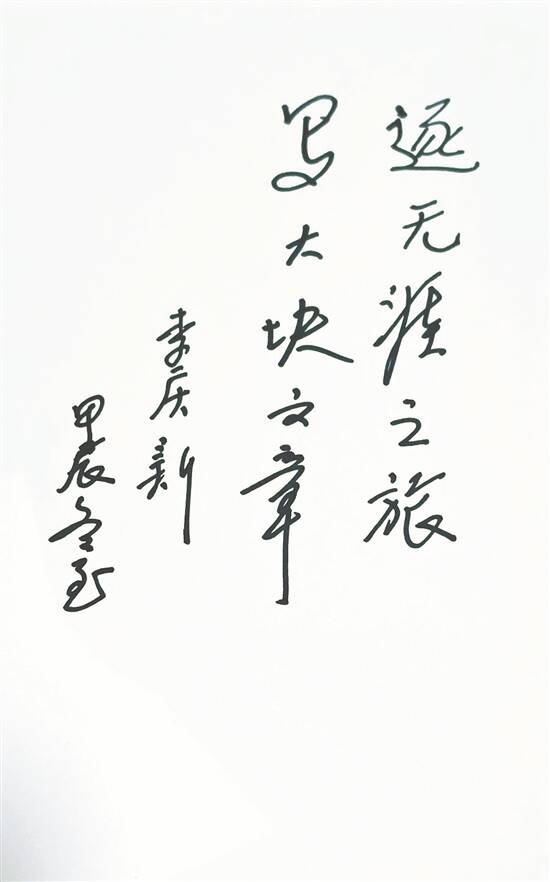 逐无涯之旅
写大块文章
李庆新
甲辰冬至